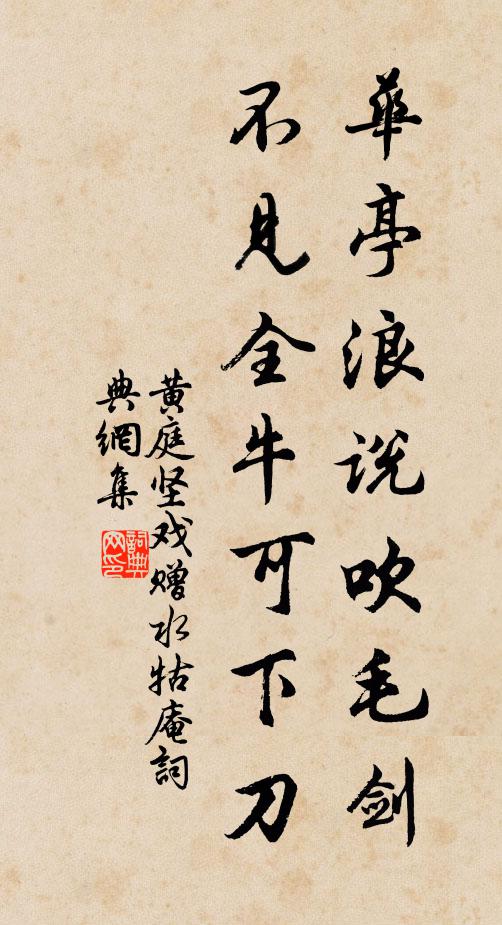 華亭浪说吹毛剑
不見全牛可下刀
黄庭坚戏赠水牯庵詞
典網集
詞典
网印